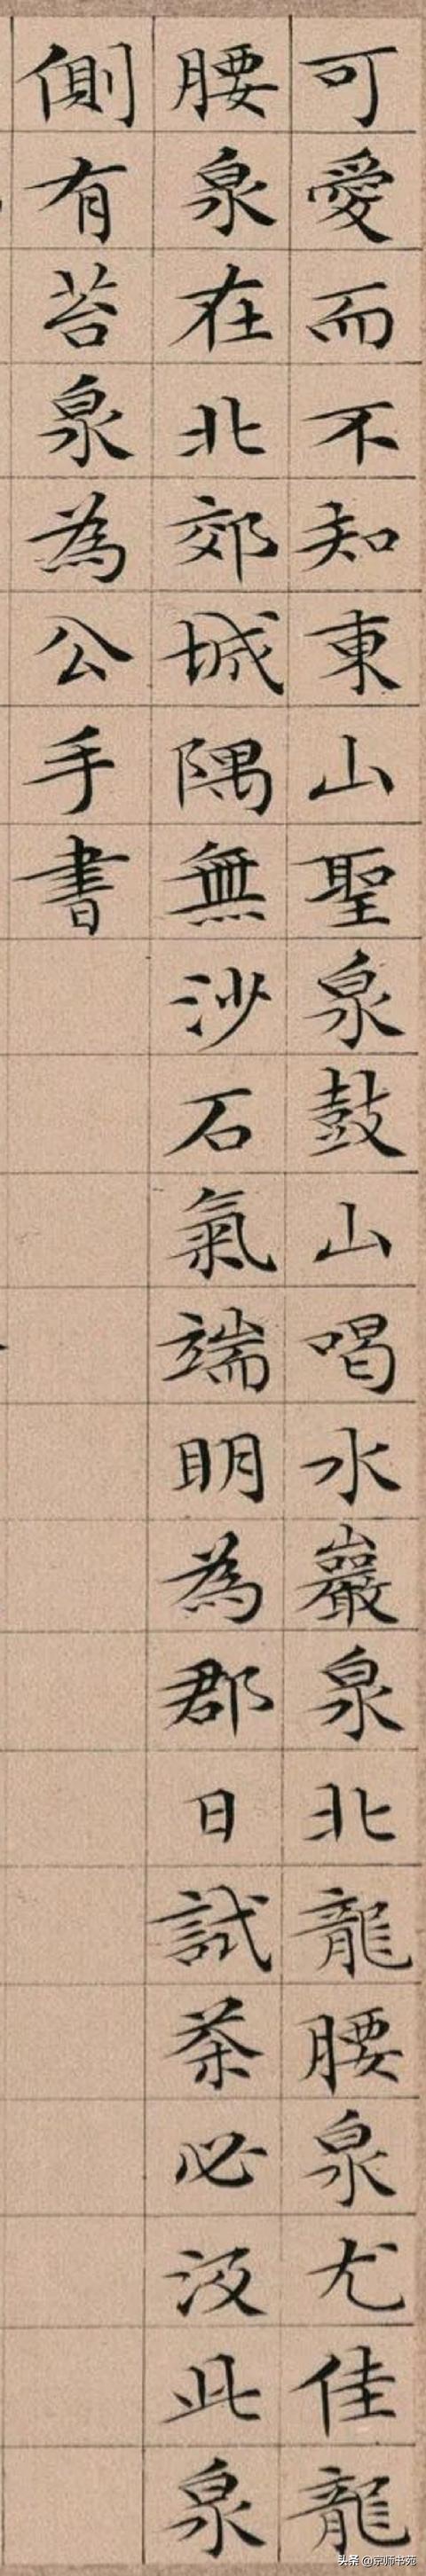 可愛而不知東山聖泉鼓山喝水巖泉北龍腰泉尤佳龍
腰泉在北郊城隅無沙石氣端明為郡日試茶必汲此泉
側有苔泉為公手書
头条 @京师书苑